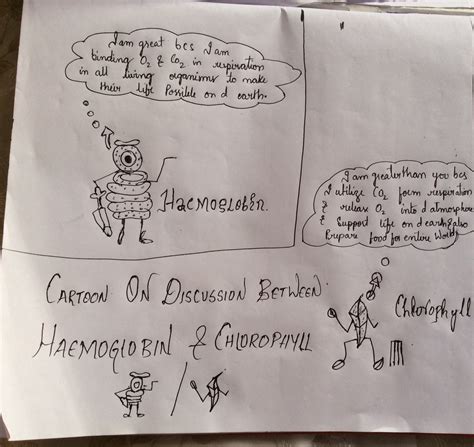 I am great bcs I am
binding O2 & CO2 in respiration
in all living organisms to make
their life Possible on d earth.
HAEMOGLOBIN.
I am greater than you bcs
I utilize CO2 form respiration
& release O2 into d atmosphere
& Support life on d earth & also
Prepare food for entire World
Chlorophyll
CARTOON ON DISCUSSION BETWEEN
HAEMOGLOBIN & CHLOROPHYLL